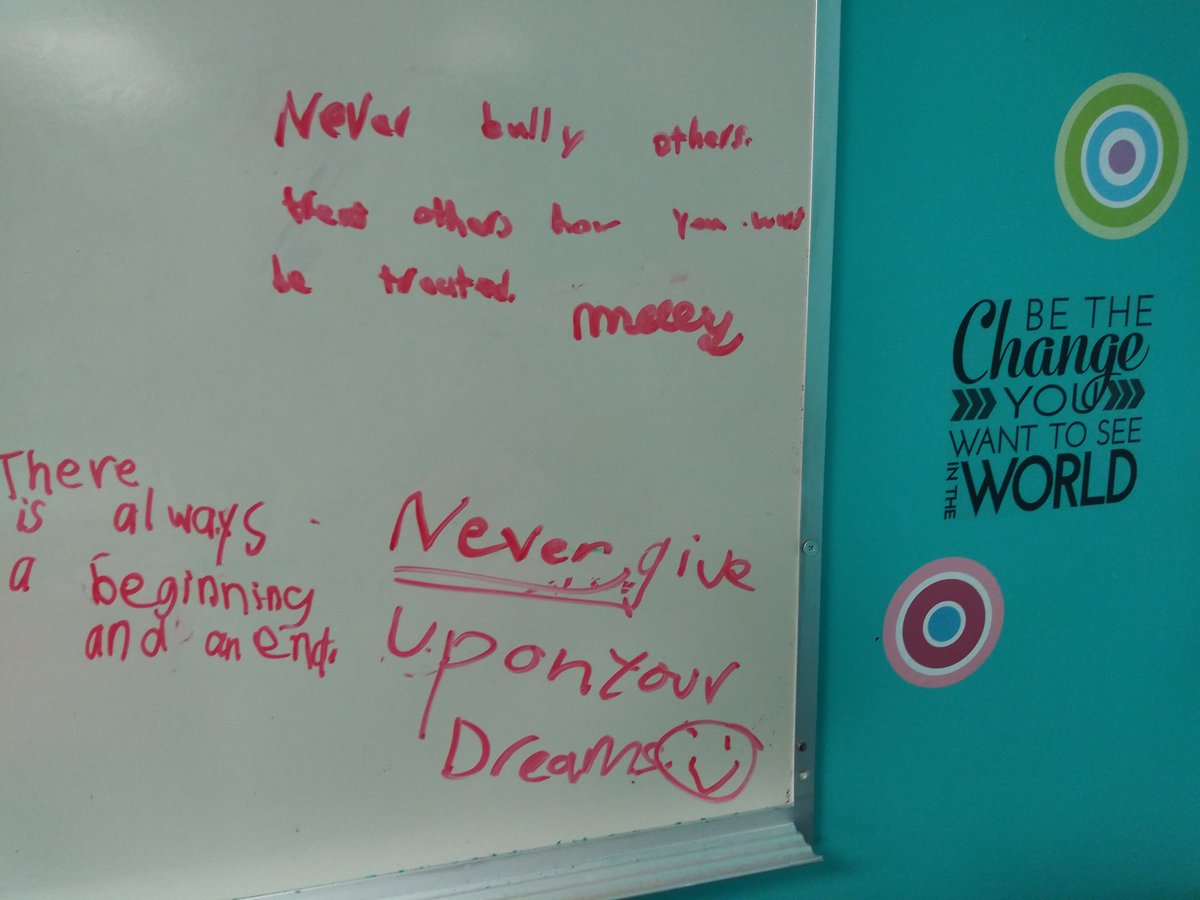 Never bully others.
treat others how you want
be treated.
There
is always
a beginning
and an end.
Never give
up on Your
Dreams
BE THE
Change
YOU
WANT TO SEE
IN THE
WORLD